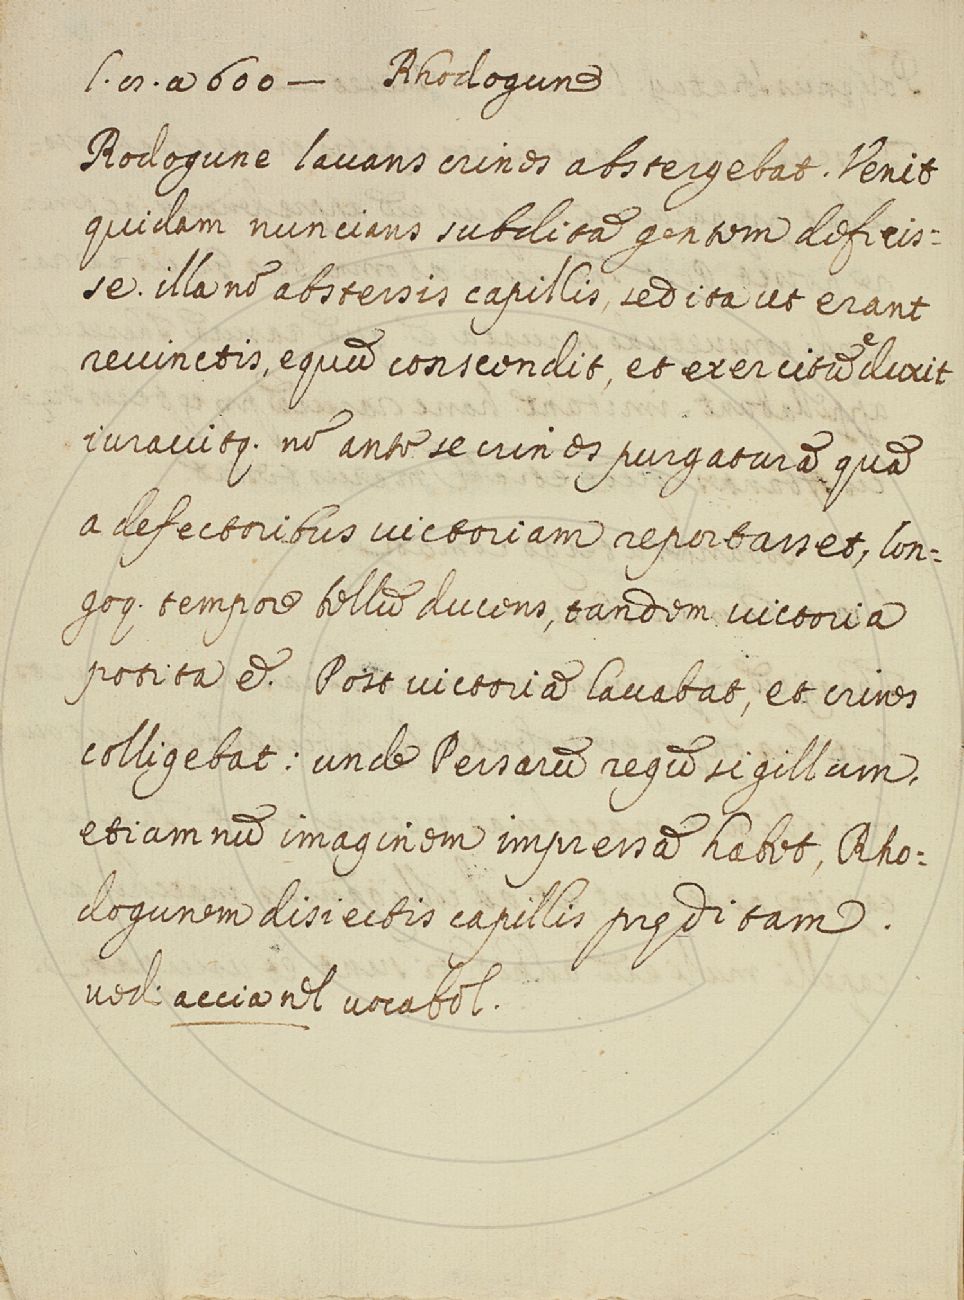 l. cs. a 600 — Rhodogune
Rodogune lauans crines abstergebat. Venit
quidam nuncians subditã gentem defecis=
se. illa nõ abstersis capillis, sed ita ut erant
reuinctis, equũ conscendit, et exercitũ eduxit
iurauitq. nõ ante se crines purgaturã quã
a defectoribus uictoriam reportasset, lon=
goq. tempore bellũ ducens, tandem uictoria
potita ẽ. Post uictoriã lauabat, et crines
colligebat: unde Persarũ regũ sigillum,
etiamnũ imaginem impressã habet, Rho=
dogunem disiectis capillis pręditam.
ved: accia nel vocabol.